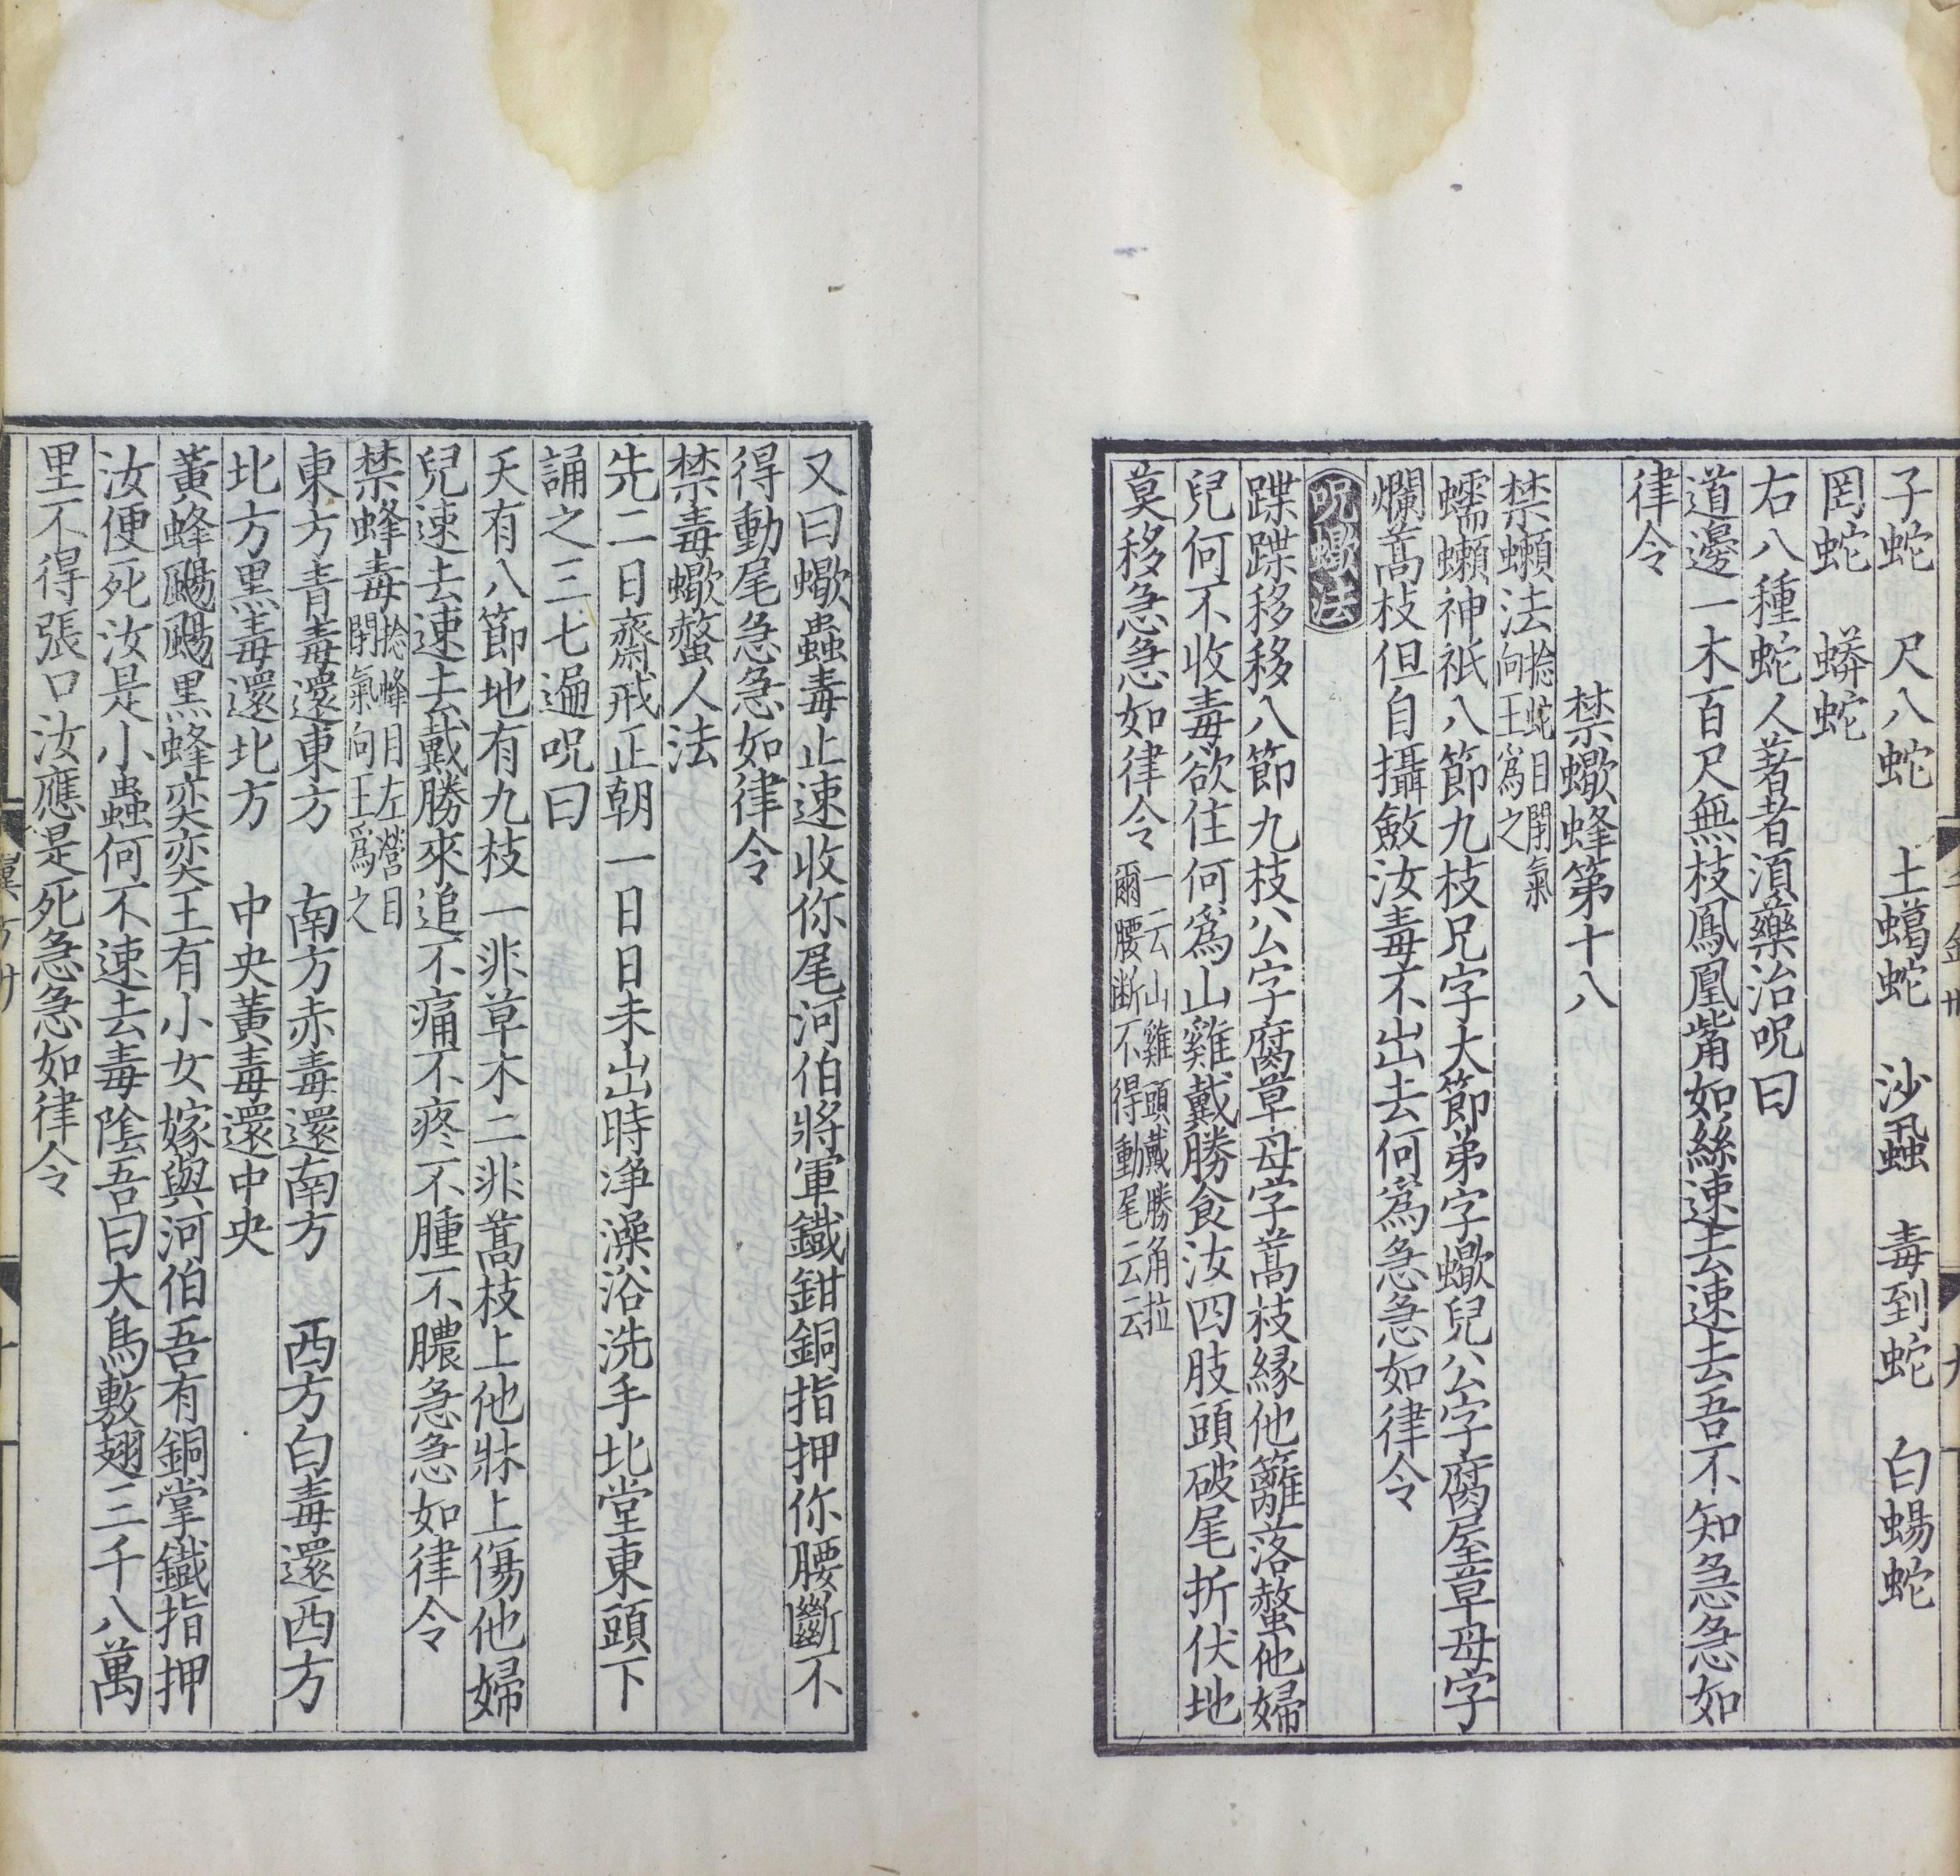 子蛇　尺八蛇　土蝎蛇　沙蝨　毒到蛇　白蜴蛇
罔蛇　蟒蛇
右八種蛇人著者須藥治呪曰
道邊一木百尺無枝鳳凰觜如絲速去速去吾不知急急如
律令
禁蠍蜂第十八
禁蠍法捻蛇目閉氣
向王爲之
蠕蠍神祇八節九枝兄字大節弟字蠍兒公字腐屋草母字
爛蒿枝但自攝斂汝毒不出去何爲急急如律令
呪蠍法
蹀蹀移移八節九枝公字腐草母字蒿枝緣他籬落螫他婦
兒何不收毒欲住何爲山雞戴勝食汝四肢頭破尾折伏地
莫移急急如律令一云山雞頭戴勝角拉
爾腰斷不得動尾云云
又曰蠍蟲毒止速收你尾河伯將軍鐵鉗銅指押你腰斷不
得動尾急急如律令
禁毒蠍螫人法
先二日齋戒正朝一日日未出時淨澡浴洗手北堂東頭下
誦之三七遍呪曰
天有八節地有九枝一非草木二非蒿枝上他牀上傷他婦
兒速去速去戴勝來追不痛不疼不腫不膿急急如律令
禁蜂毒捻蜂目左營目
閉氣向王爲之
東方青毒還東方　南方赤毒還南方　西方白毒還西方
北方黑毒還北方　中央黃毒還中央
黃蜂颺颺黑蜂奕奕王有小女嫁與河伯吾有銅掌鐵指押
汝便死汝是小蟲何不速去毒陰吾曰大鳥敷翅三千八萬
里不得張口汝應是死急急如律令